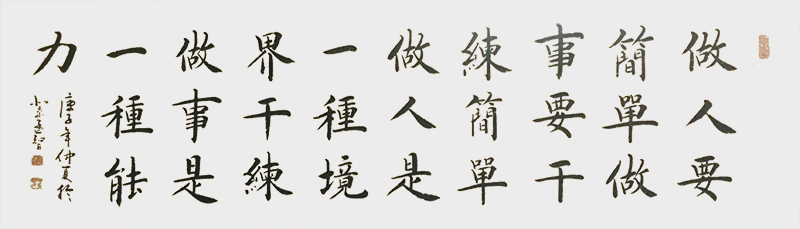 做人要
簡單做
事要干
練簡單
做人是
一種境
界干練
做事是
一種能
力
庚子年仲夏於